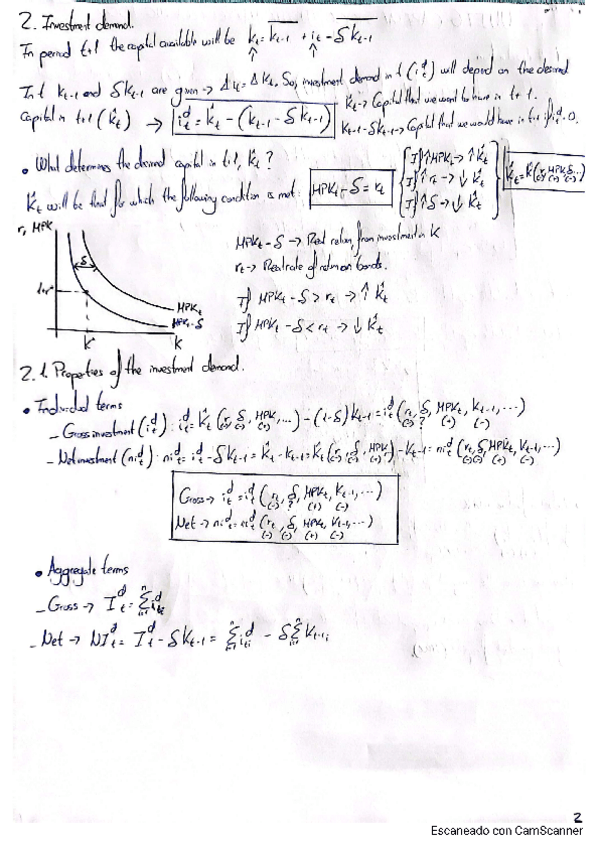 2. Investment demand.
In period t+1 the capital available will be k_t = k_{t-1} + i_t - δk_{t-1}
In t k_{t-1} and δk_{t-1} are given → Δi_t = Δk_t. So, investment demand in t (i_t^d) will depend on the desired
capital in t+1 (k̂_t) → i_t^d = k̂_t - (k_{t-1} - δk_{t-1})
k̂_t → Capital that we want to have in t+1.
k_{t-1} - δk_{t-1} → Capital that we would have in t+1 if i_t^d = 0.
• What determines the desired capital in t+1, k̂_t?
k̂_t will be that for which the following condition is met: MPK_t - δ = r_t
If ↑MPK_t → ↑k̂_t
If ↑r_t → ↓k̂_t
If ↑δ → ↓k̂_t
k̂_t = k̂(r_t, MPK_t, δ, ...)
(-) (+) (-)
r, MPK
δ
MPK_t
MPK_t - δ
k̂
k
MPK_t - δ → Real return from investment in k
r_t → Real rate of return on bonds.
If MPK_t - δ > r_t → ↑k̂_t
If MPK_t - δ < r_t → ↓k̂_t
2.1. Properties of the investment demand.
• Individual terms
- Gross investment (i_t^d): i_t^d = k̂_t(r_t, δ, MPK_t, ...) - (1-δ)k_{t-1} = i_t^d(r_t, δ, MPK_t, k_{t-1}, ...)
(-) (-) (+) (-) ? (+) (-)
- Net investment (ni_t^d): ni_t^d = i_t^d - δk_{t-1} = k̂_t - k_{t-1} = k̂_t(r_t, δ, MPK_t) - k_{t-1} = ni_t^d(r_t, δ, MPK_t, k_{t-1}, ...)
(-) (-) (+) (-) (-) (+) (-)
Gross → i_t^d = i_t^d(r_t, δ, MPK_t, k_{t-1}, ...)
(-) ? (+) (-)
Net → ni_t^d = ni_t^d(r_t, δ, MPK_t, k_{t-1}, ...)
(-) (-) (+) (-)
• Aggregate terms
- Gross → I_t^d = Σ_{i=1}^n i_{ti}^d
- Net → NI_t^d = I_t^d - δK_{t-1} = Σ_{i=1}^n i_{ti}^d - δΣ_{i=1}^n k_{t-1i}
2
Escaneado con CamScanner